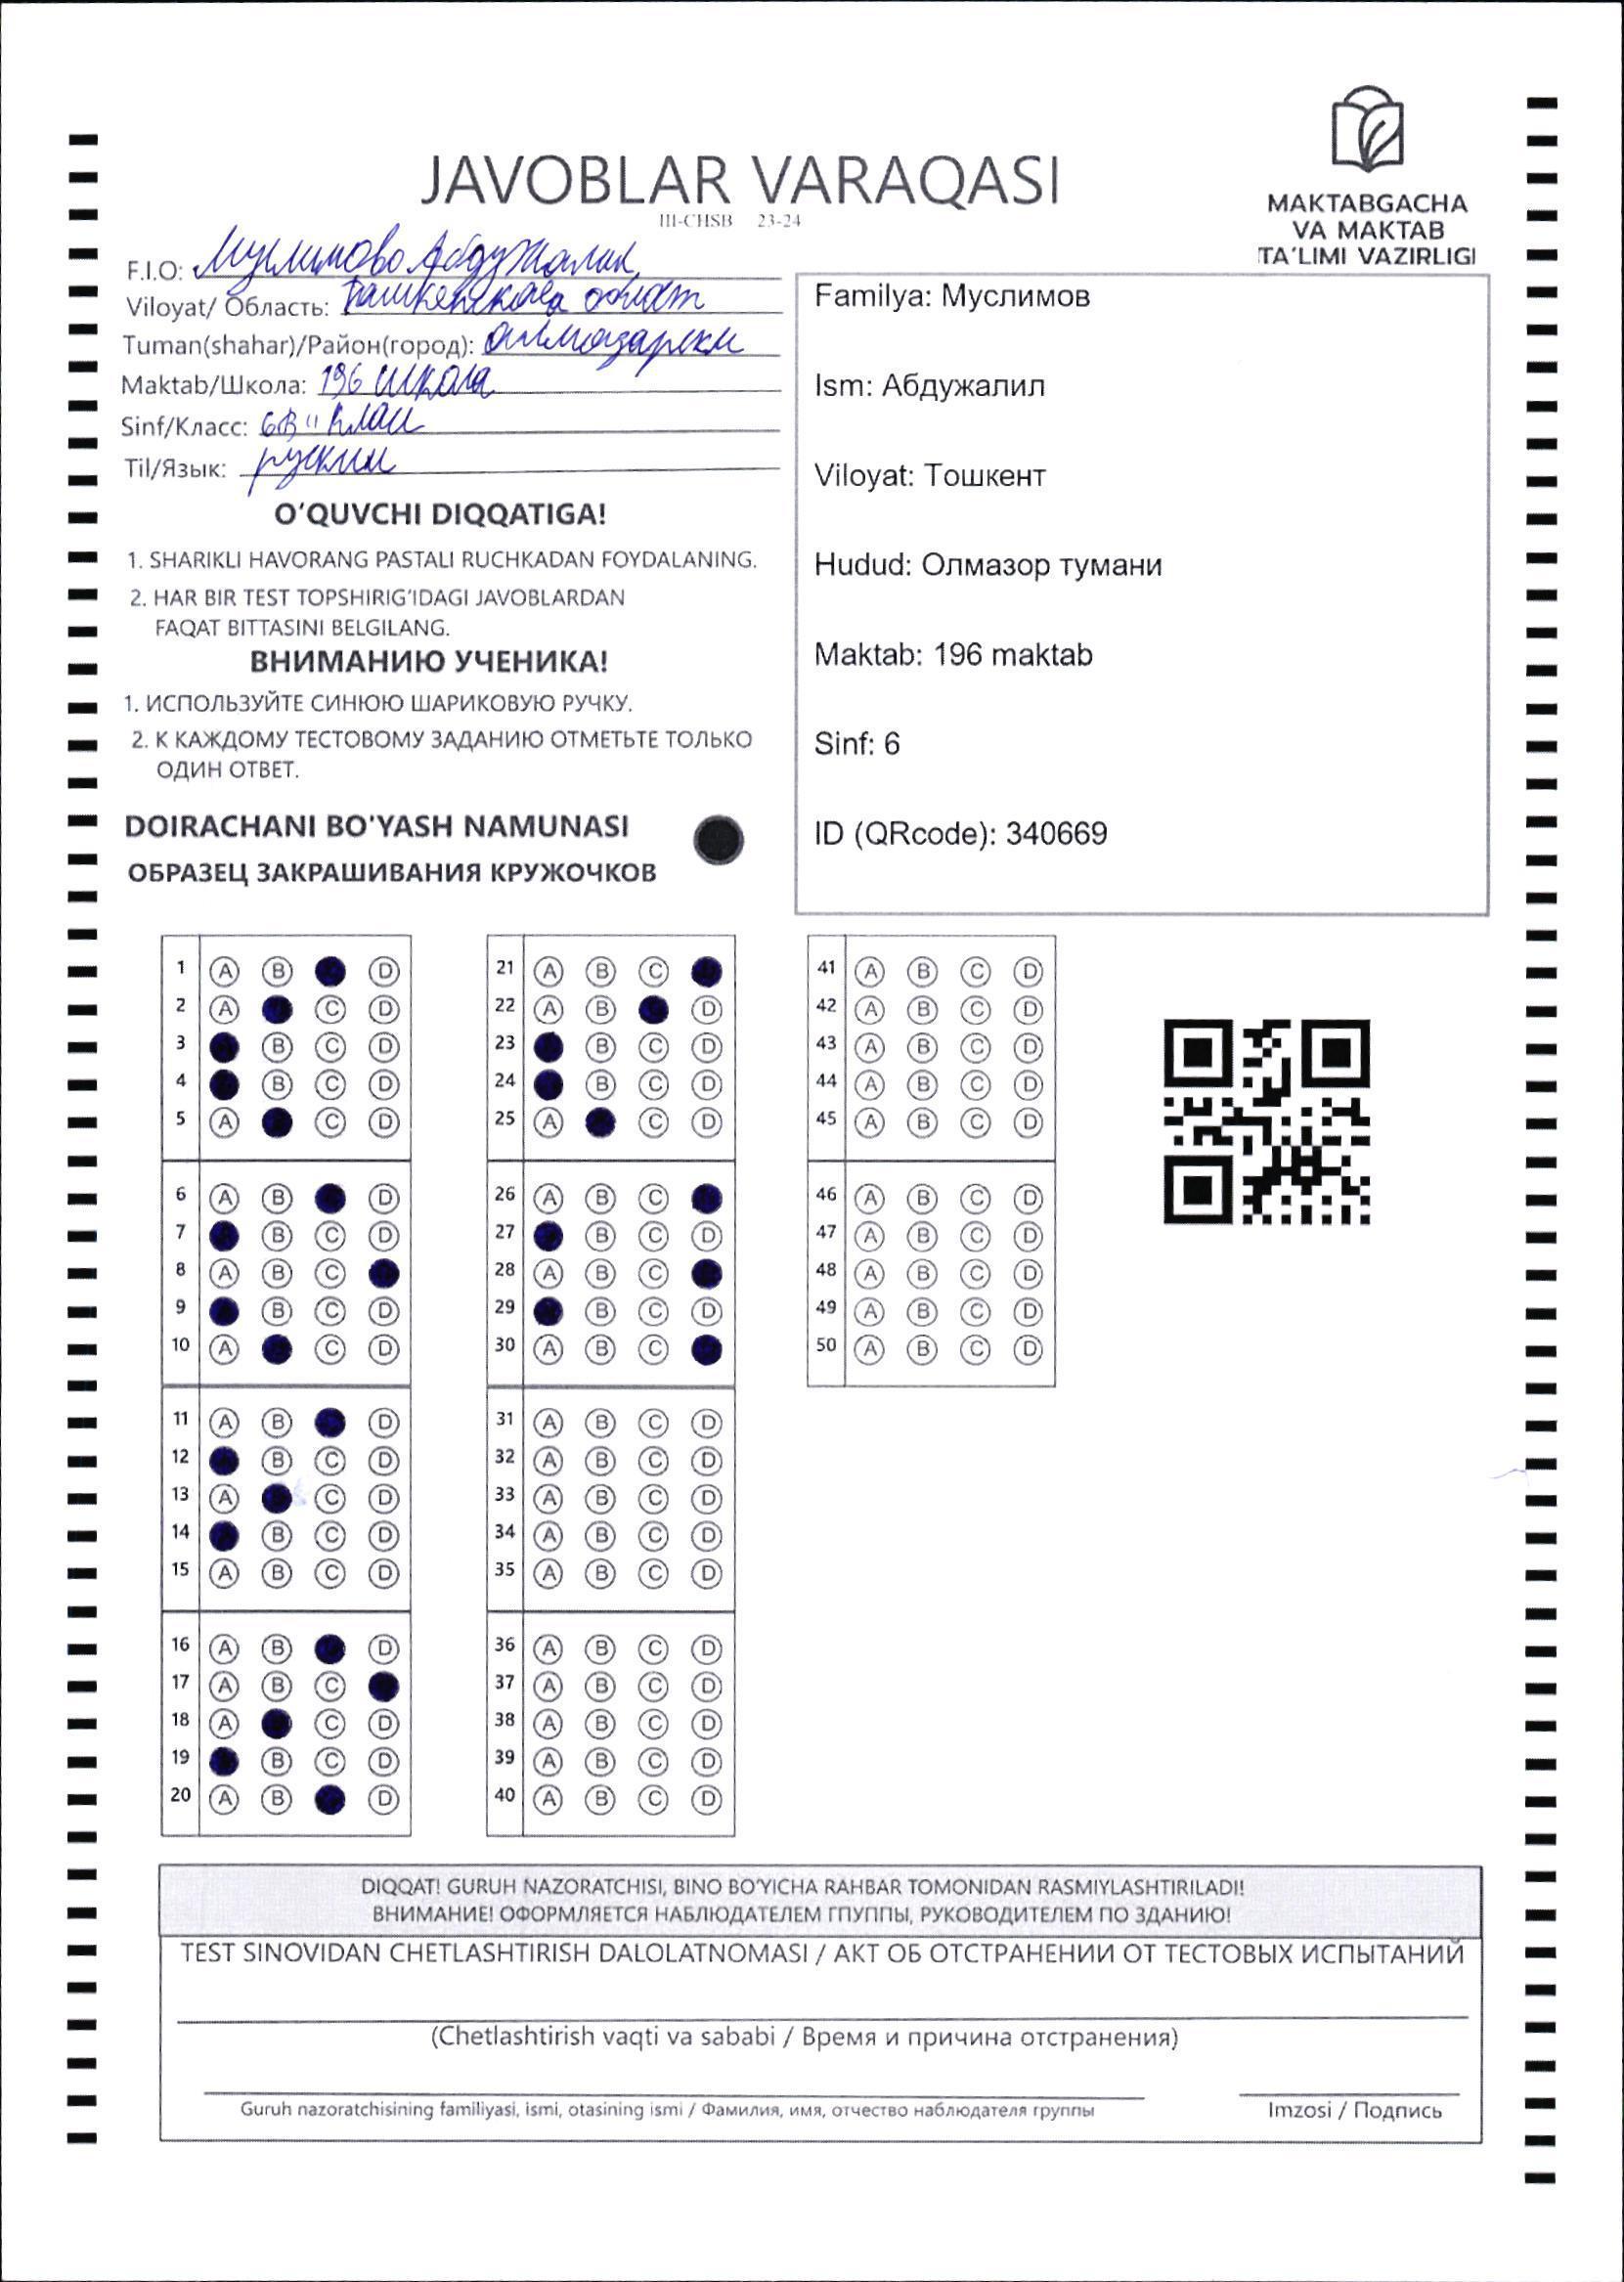 JAVOBLAR VARAQASI
III-CHSB 23-24
MAKTABGACHA
VA MAKTAB
TA'LIMI VAZIRLIGI
F.I.O: Муслимово Абдужалил
Viloyat/ Область: Ташкентскоя област
Tuman(shahar)/Район(город): алмазарски
Maktab/Школа: 196 школа
Sinf/Класс: 6В" клас
Til/Язык: руским
O'QUVCHI DIQQATIGA!
1. SHARIKLI HAVORANG PASTALI RUCHKADAN FOYDALANING.
2. HAR BIR TEST TOPSHIRIG'IDAGI JAVOBLARDAN
FAQAT BITTASINI BELGILANG.
ВНИМАНИЮ УЧЕНИКА!
1. ИСПОЛЬЗУЙТЕ СИНЮЮ ШАРИКОВУЮ РУЧКУ.
2. К КАЖДОМУ ТЕСТОВОМУ ЗАДАНИЮ ОТМЕТЬТЕ ТОЛЬКО
ОДИН ОТВЕТ.
DOIRACHANI BO'YASH NAMUNASI
ОБРАЗЕЦ ЗАКРАШИВАНИЯ КРУЖОЧКОВ
Familya: Муслимов
Ism: Абдужалил
Viloyat: Тошкент
Hudud: Олмазор тумани
Maktab: 196 maktab
Sinf: 6
ID (QRcode): 340669
1 A B D
2 A C D
3 B C D
4 B C D
5 A C D
6 A B D
7 B C D
8 A B C
9 B C D
10 A C D
11 A B D
12 B C D
13 A C D
14 B C D
15 A B C D
16 A B D
17 A B C
18 A C D
19 B C D
20 A B D
21 A B C
22 A B D
23 B C D
24 B C D
25 A C D
26 A B C
27 B C D
28 A B C
29 B C D
30 A B C
31 A B C D
32 A B C D
33 A B C D
34 A B C D
35 A B C D
36 A B C D
37 A B C D
38 A B C D
39 A B C D
40 A B C D
41 A B C D
42 A B C D
43 A B C D
44 A B C D
45 A B C D
46 A B C D
47 A B C D
48 A B C D
49 A B C D
50 A B C D
DIQQAT! GURUH NAZORATCHISI, BINO BO'YICHA RAHBAR TOMONIDAN RASMIYLASHTIRILADI!
ВНИМАНИЕ! ОФОРМЛЯЕТСЯ НАБЛЮДАТЕЛЕМ ГПУППЫ, РУКОВОДИТЕЛЕМ ПО ЗДАНИЮ!
TEST SINOVIDAN CHETLASHTIRISH DALOLATNOMASI / АКТ ОБ ОТСТРАНЕНИИ ОТ ТЕСТОВЫХ ИСПЫТАНИЙ
(Chetlashtirish vaqti va sababi / Время и причина отстранения)
Guruh nazoratchisining familiyasi, ismi, otasining ismi / Фамилия, имя, отчество наблюдателя группы
Imzosi / Подпись